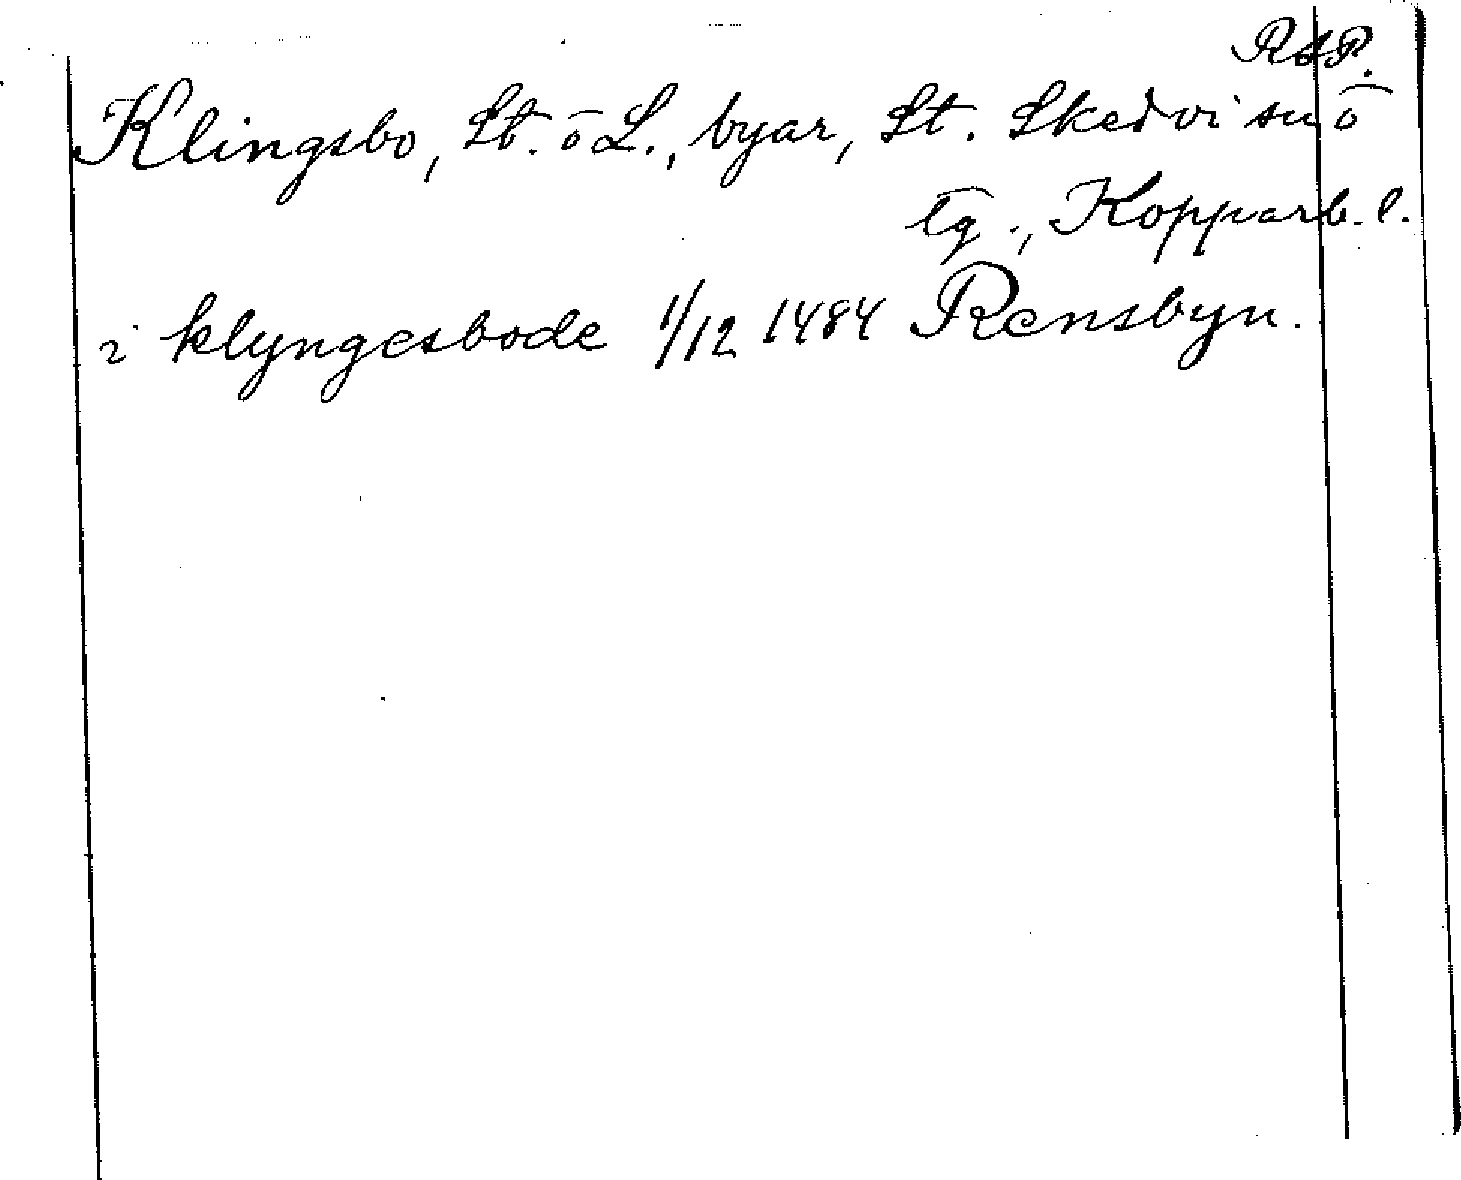 RAP.
Klingsbo, St. o L., byar, St. Skedvi sn o
tg., Kopparb. l.
i klyngesbode 1/12 1484 Rensbyn.